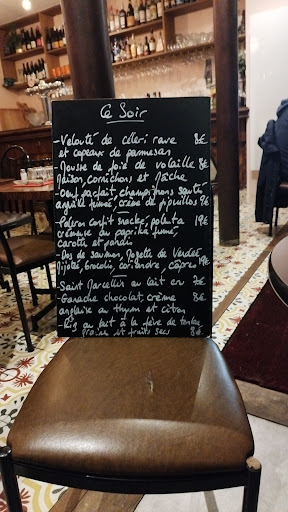 Ce Soir
- Velouté de céleri rave 8€
et copeaux de parmesan
- Mousse de foie de volaille 8€
maison, cornichons et mâche
- Oeuf parfait, champignons sautés
anguille fumé, crème de 9€
- Paleron confit snacké, polenta 19€
crémeuse au paprika fumé,
carotte et
- Dos de saumon, Mogette de Vendée
mijotés, brocolis, coriandre, câpre 19€
- Saint Marcellin au lait cru 7€
- Ganache chocolat, crème 8€
anglaise au thym et citron
- Riz au lait à la fève de tonka,
praliné et fruits secs 8€